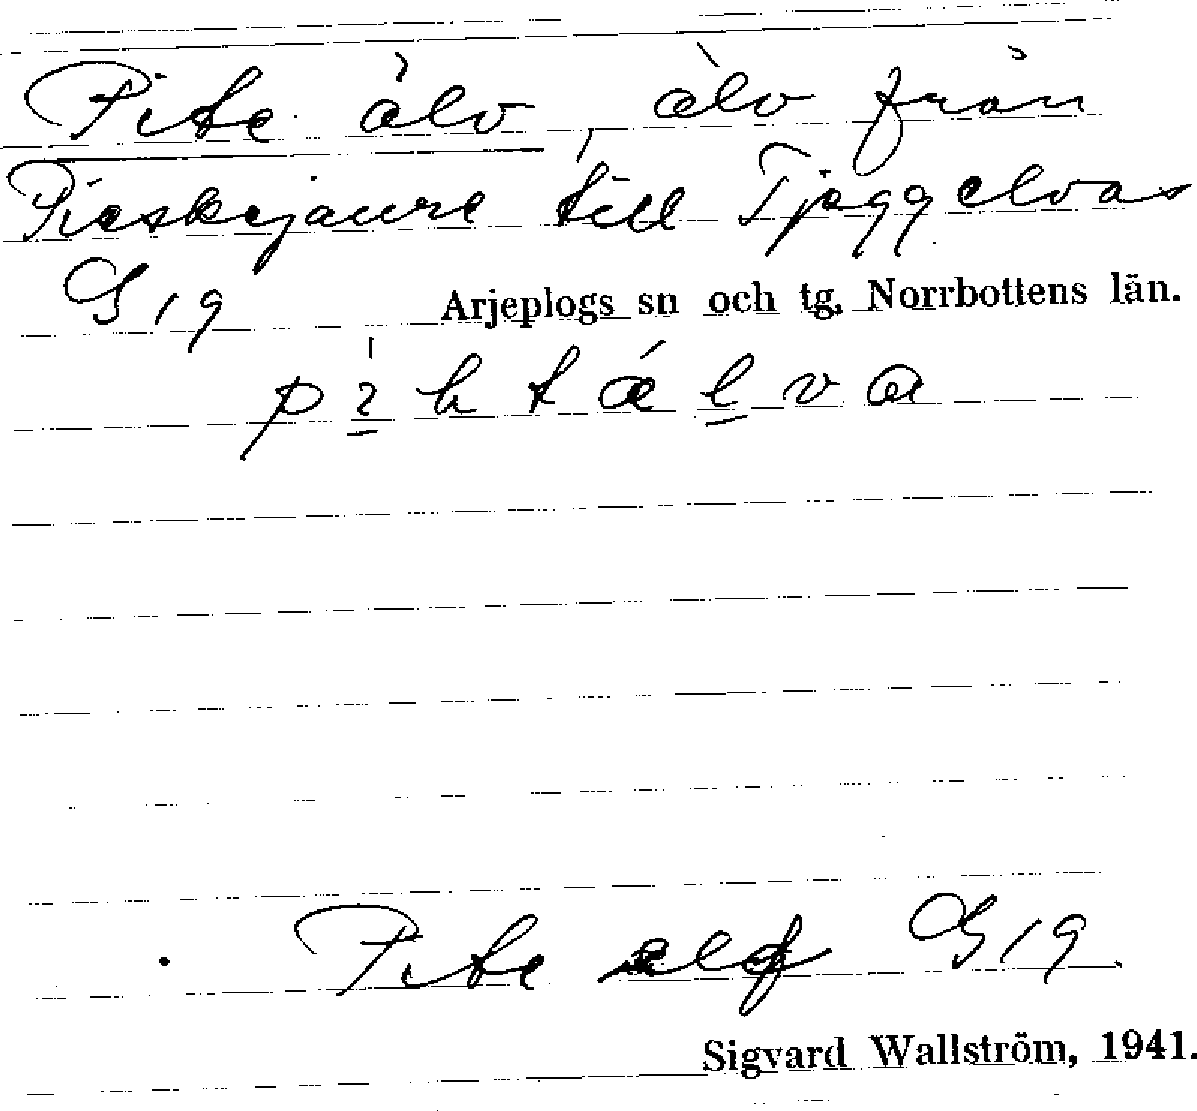 Pite älv, älv från
Pieskejaure till Tjeggelvas
G 19 Arjeplogs sn och tg, Norrbottens län.
Pite elf G 19
Sigvard Wallström, 1941.